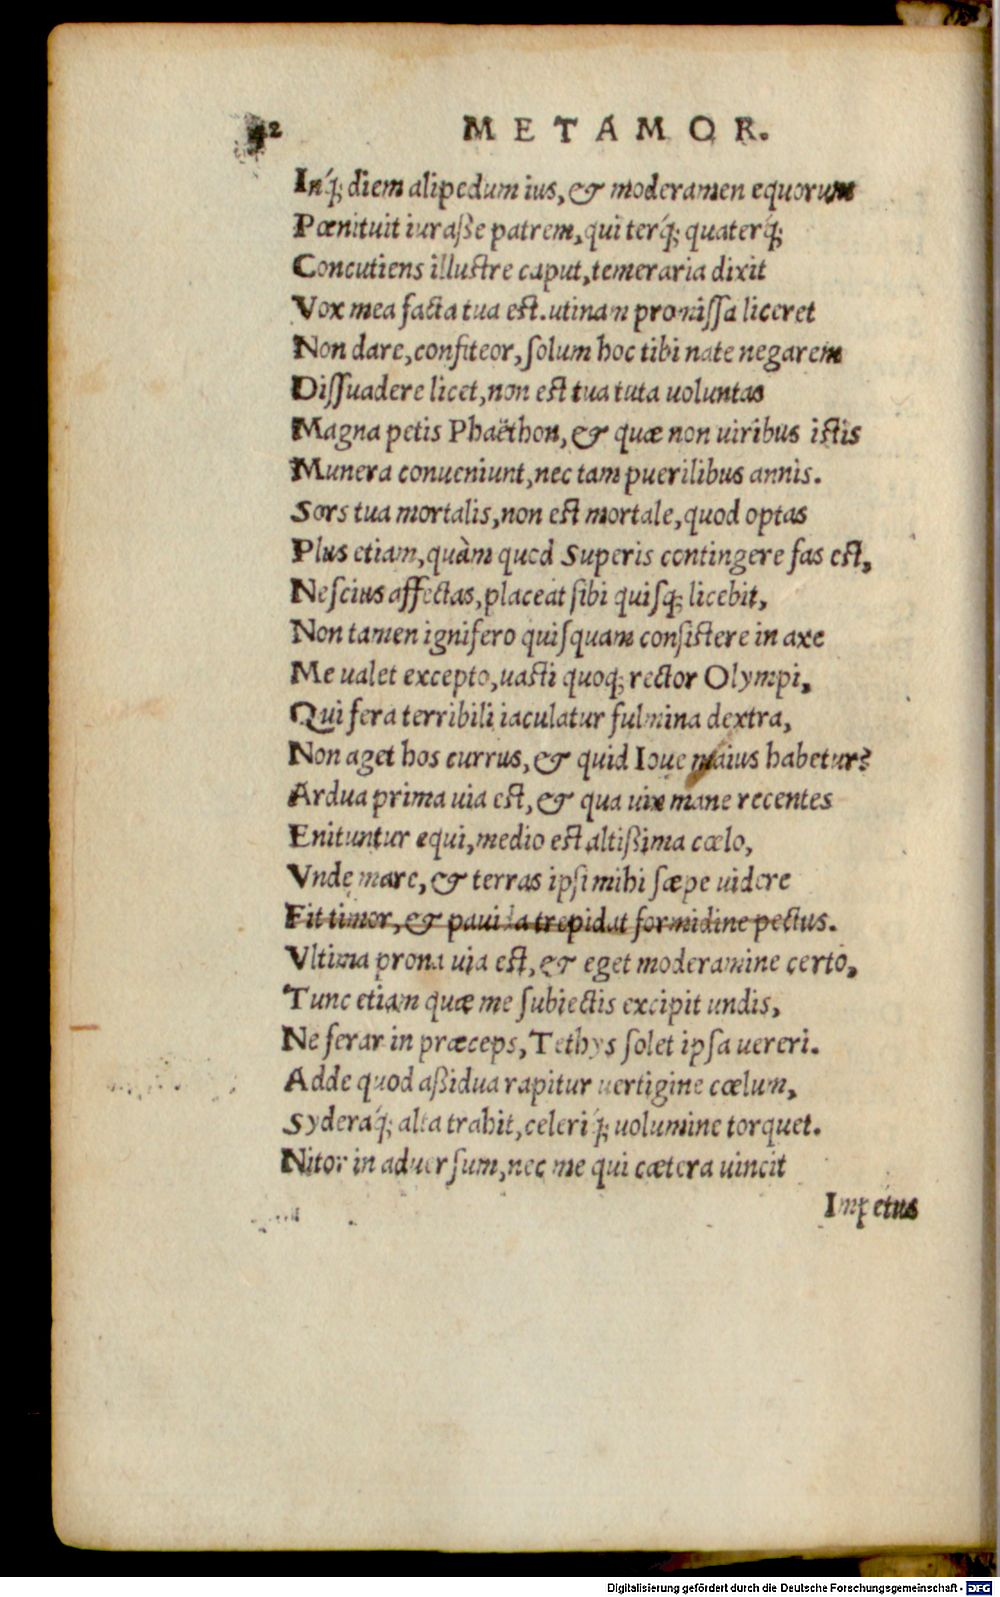 42 METAMOR.
Inq́; diem alipedum ius, & moderamen equorum
Pœnituit iuraße patrem, qui terq́; quaterq́;
Concutiens illustre caput, temeraria dixit
Vox mea facta tua est. utinam promiſſa liceret
Non dare, confiteor, ſolum hoc tibi nate negarem
Diſſuadere licet, non est tua tuta uoluntas
Magna petis Phaëthon, & quæ non uiribus istis
Munera conueniunt, nec tam puerilibus annis.
Sors tua mortalis, non est mortale, quod optas
Plus etiam, quàm quod Superis contingere fas est,
Neſcius affectas, placeat ſibi quiſq; licebit,
Non tamen ignifero quiſquam conſistere in axe
Me ualet excepto, uasti quoq; rector Olympi,
Qui fera terribili iaculatur fulmina dextra,
Non aget hos currus, & quid Ioue maius habetur?
Ardua prima uia est, & qua uix mane recentes
Enituntur equi, medio est altißima cœlo,
Vnde mare, & terras ipſi mihi ſæpe uidere
Fit timor, & pauida trepidat formidine pectus.
Vltima prona uia est, & eget moderamine certo,
Tunc etiam quæ me ſubiectis excipit undis,
Ne ferar in præceps, Tethys ſolet ipſa uereri.
Adde quod aßidua rapitur uertigine cœlum,
Syderaq́; alta trahit, celeriq́; uolumine torquet.
Nitor in aduerſum, nec me qui cætera uincit
Impetus
Digitalisierung gefördert durch die Deutsche Forschungsgemeinschaft - DFG